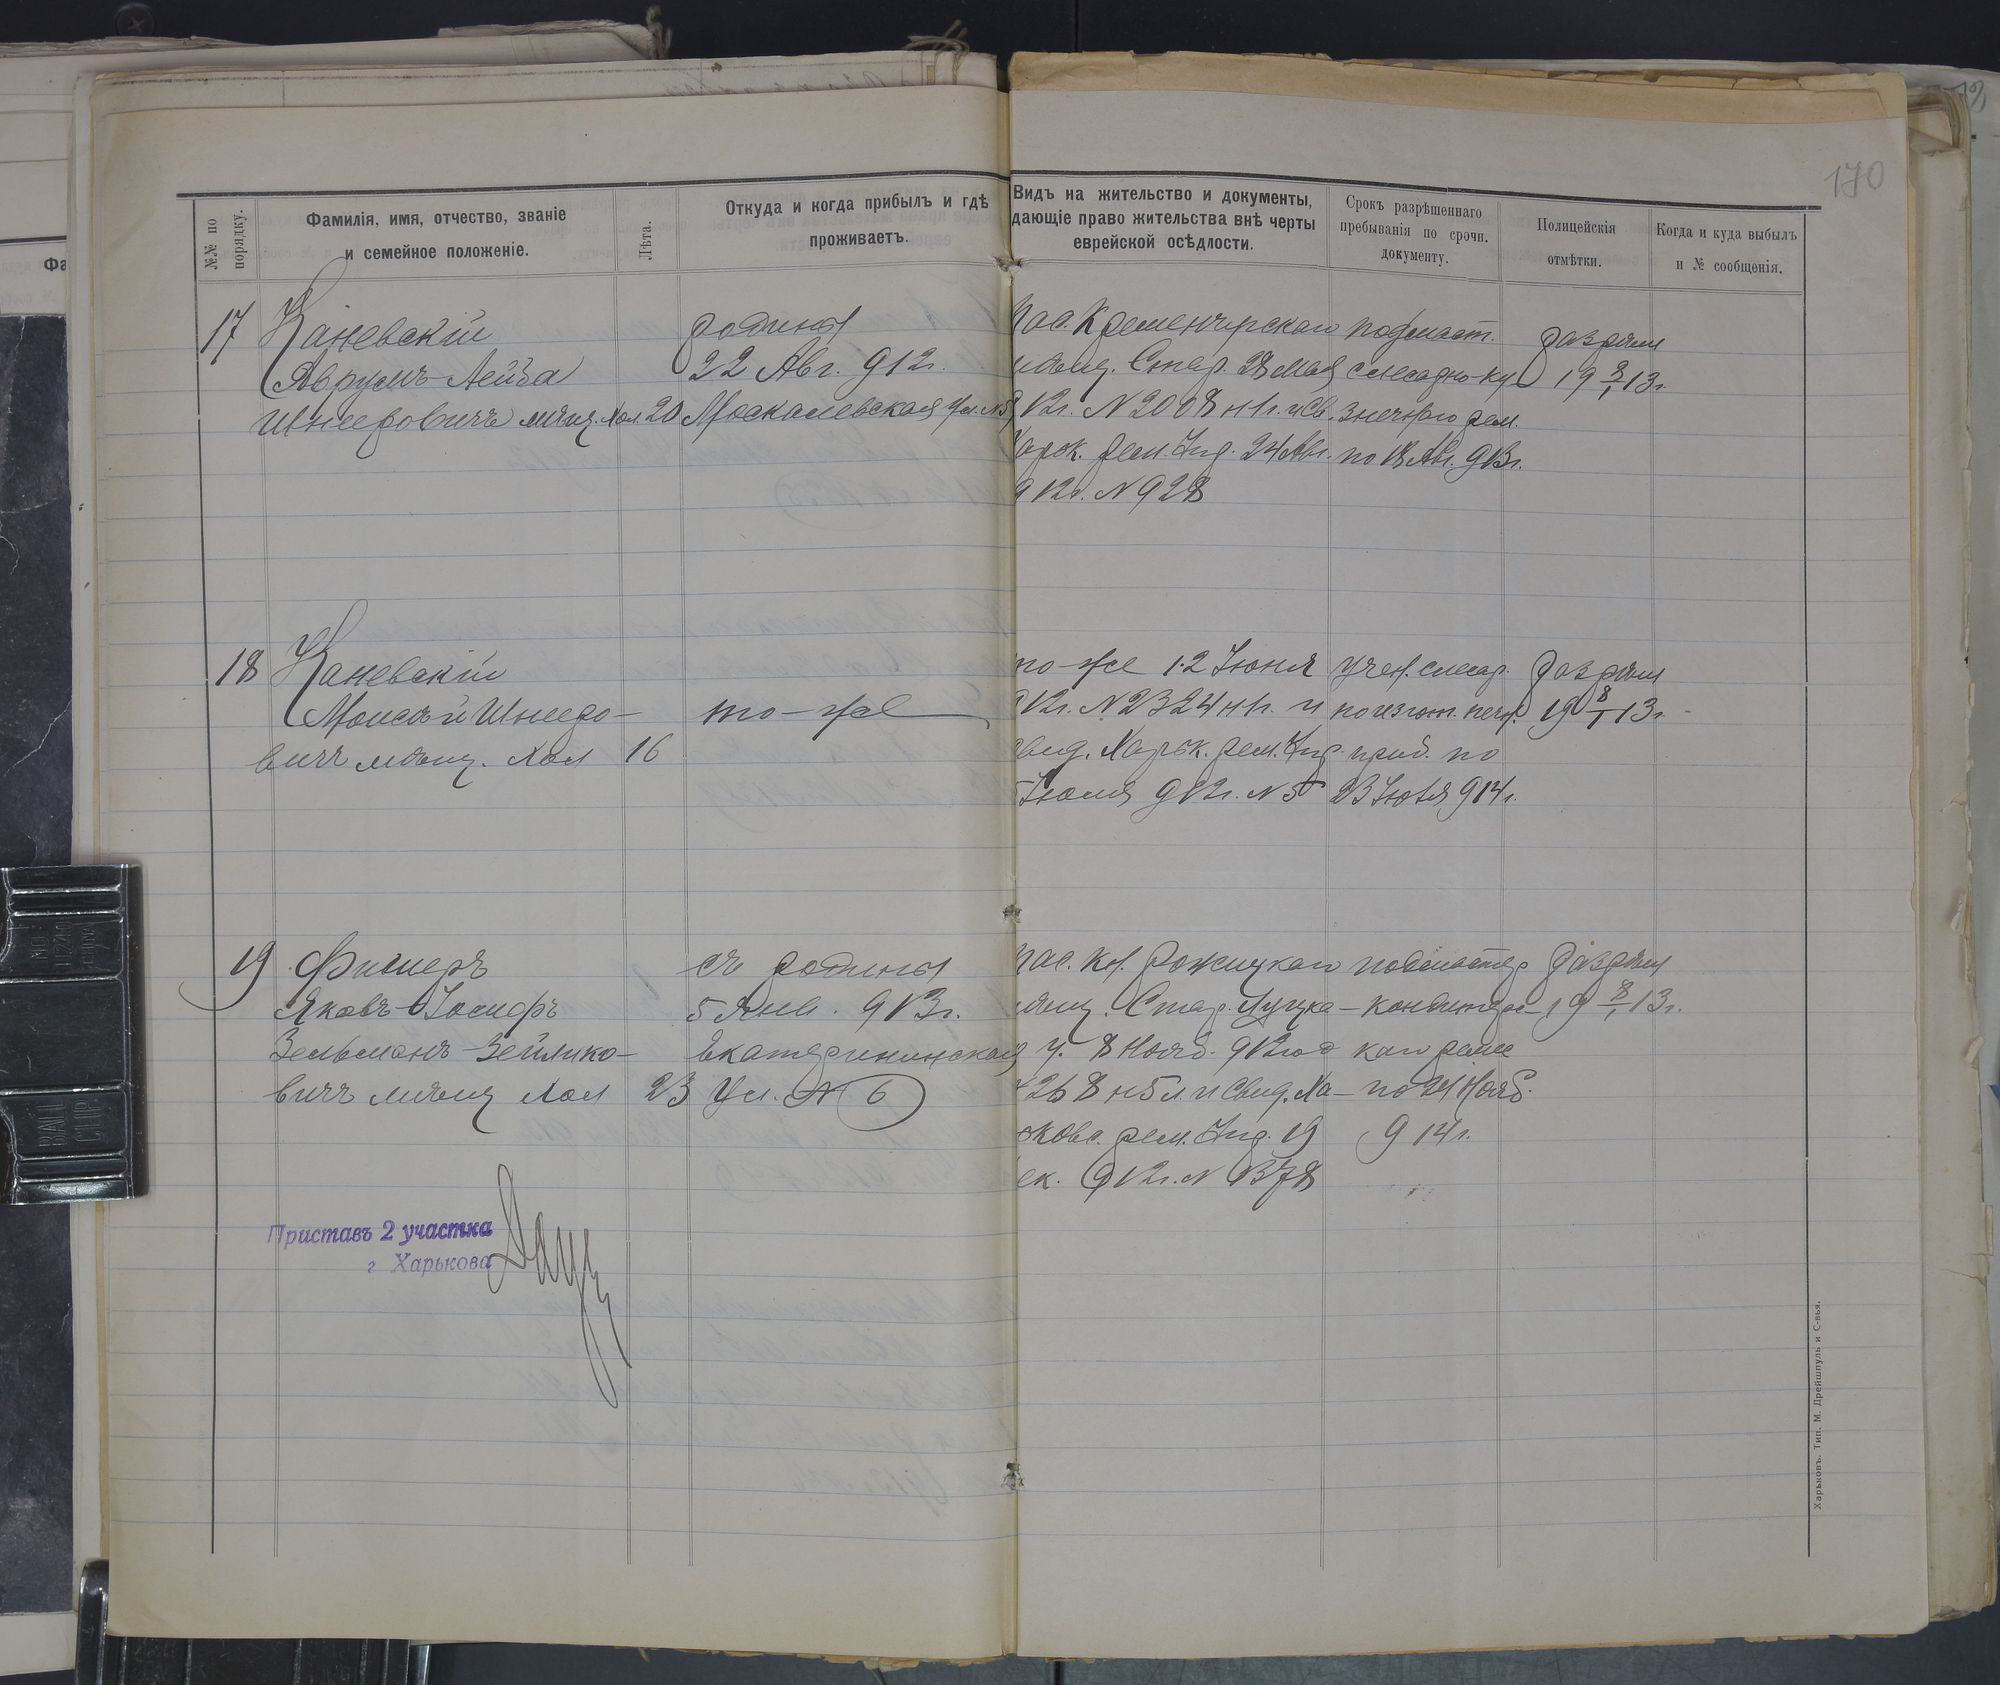 170
№№ по порядку.
Фамилія, имя, отчество, званіе
и семейное положеніе.
Лѣта.
Откуда и когда прибылъ и гдѣ
проживаетъ.
Видъ на жительство и документы,
дающіе право жительства внѣ черты
еврейской осѣдлости.
Срокъ разрѣшеннаго
пребыванія по срочн.
документу.
Полицейскія
отмѣтки.
Когда и куда выбылъ
и № сообщенія.
17
Каневскій
Аврумъ-Лейба
Шнеeровичъ мѣщ. Хол. 20
родины
22 Авг. 912г.
Москалевская ул. №
пас. Кременчугскаго
мѣщ. Стар. 28 Мая
912г. N 2008 н1г. и Св.
Харьк. рем. 24 Авг.
912г. N 928
подмаст.
слесарно-ку
знечнаго рем.
по 18 Авг. 913г.
19 8/I 13г.
18
Каневскій
Моисѣй Шнееро-
вичъ мѣщ. Хол 16
то-же
то-же 12 Іюня
912г. N 2324 н1г. и
свид. Харьк. рем.
5 Іюля 912г. N 5
учен. слесар.
по изгот. печн.
приб. по
23 Іюня 914г.
19 8/I 13г.
19
Фишеръ
Яковъ-Іосифъ
Зельманъ-Зейлико-
вичъ мѣщ Хол 23
съ родины
5 Янв. 913г.
Екатерининская
Ул. N 6
пас. Кл. Рожицкаго
мѣщ. Стар. Луцка-
го у. 8 Нояб. 912год
N 268 н5л. и Свид. Ха-
рьковс. рем. 19
Дек. 912г. N 1378
подмастер
кондитерс-
каго ремес
по 24 Нояб.
914г.
19 8/I 13г.
Приставъ 2 участка
г Харькова
Харьковъ. Тип. М. Дрейшпуль и С-вья.